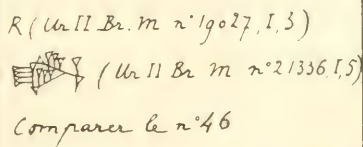 R (Ur II Br. M n° 19027, I, 3)
(Ur II Br M n° 21336, I, 5)
Comparer le n° 46